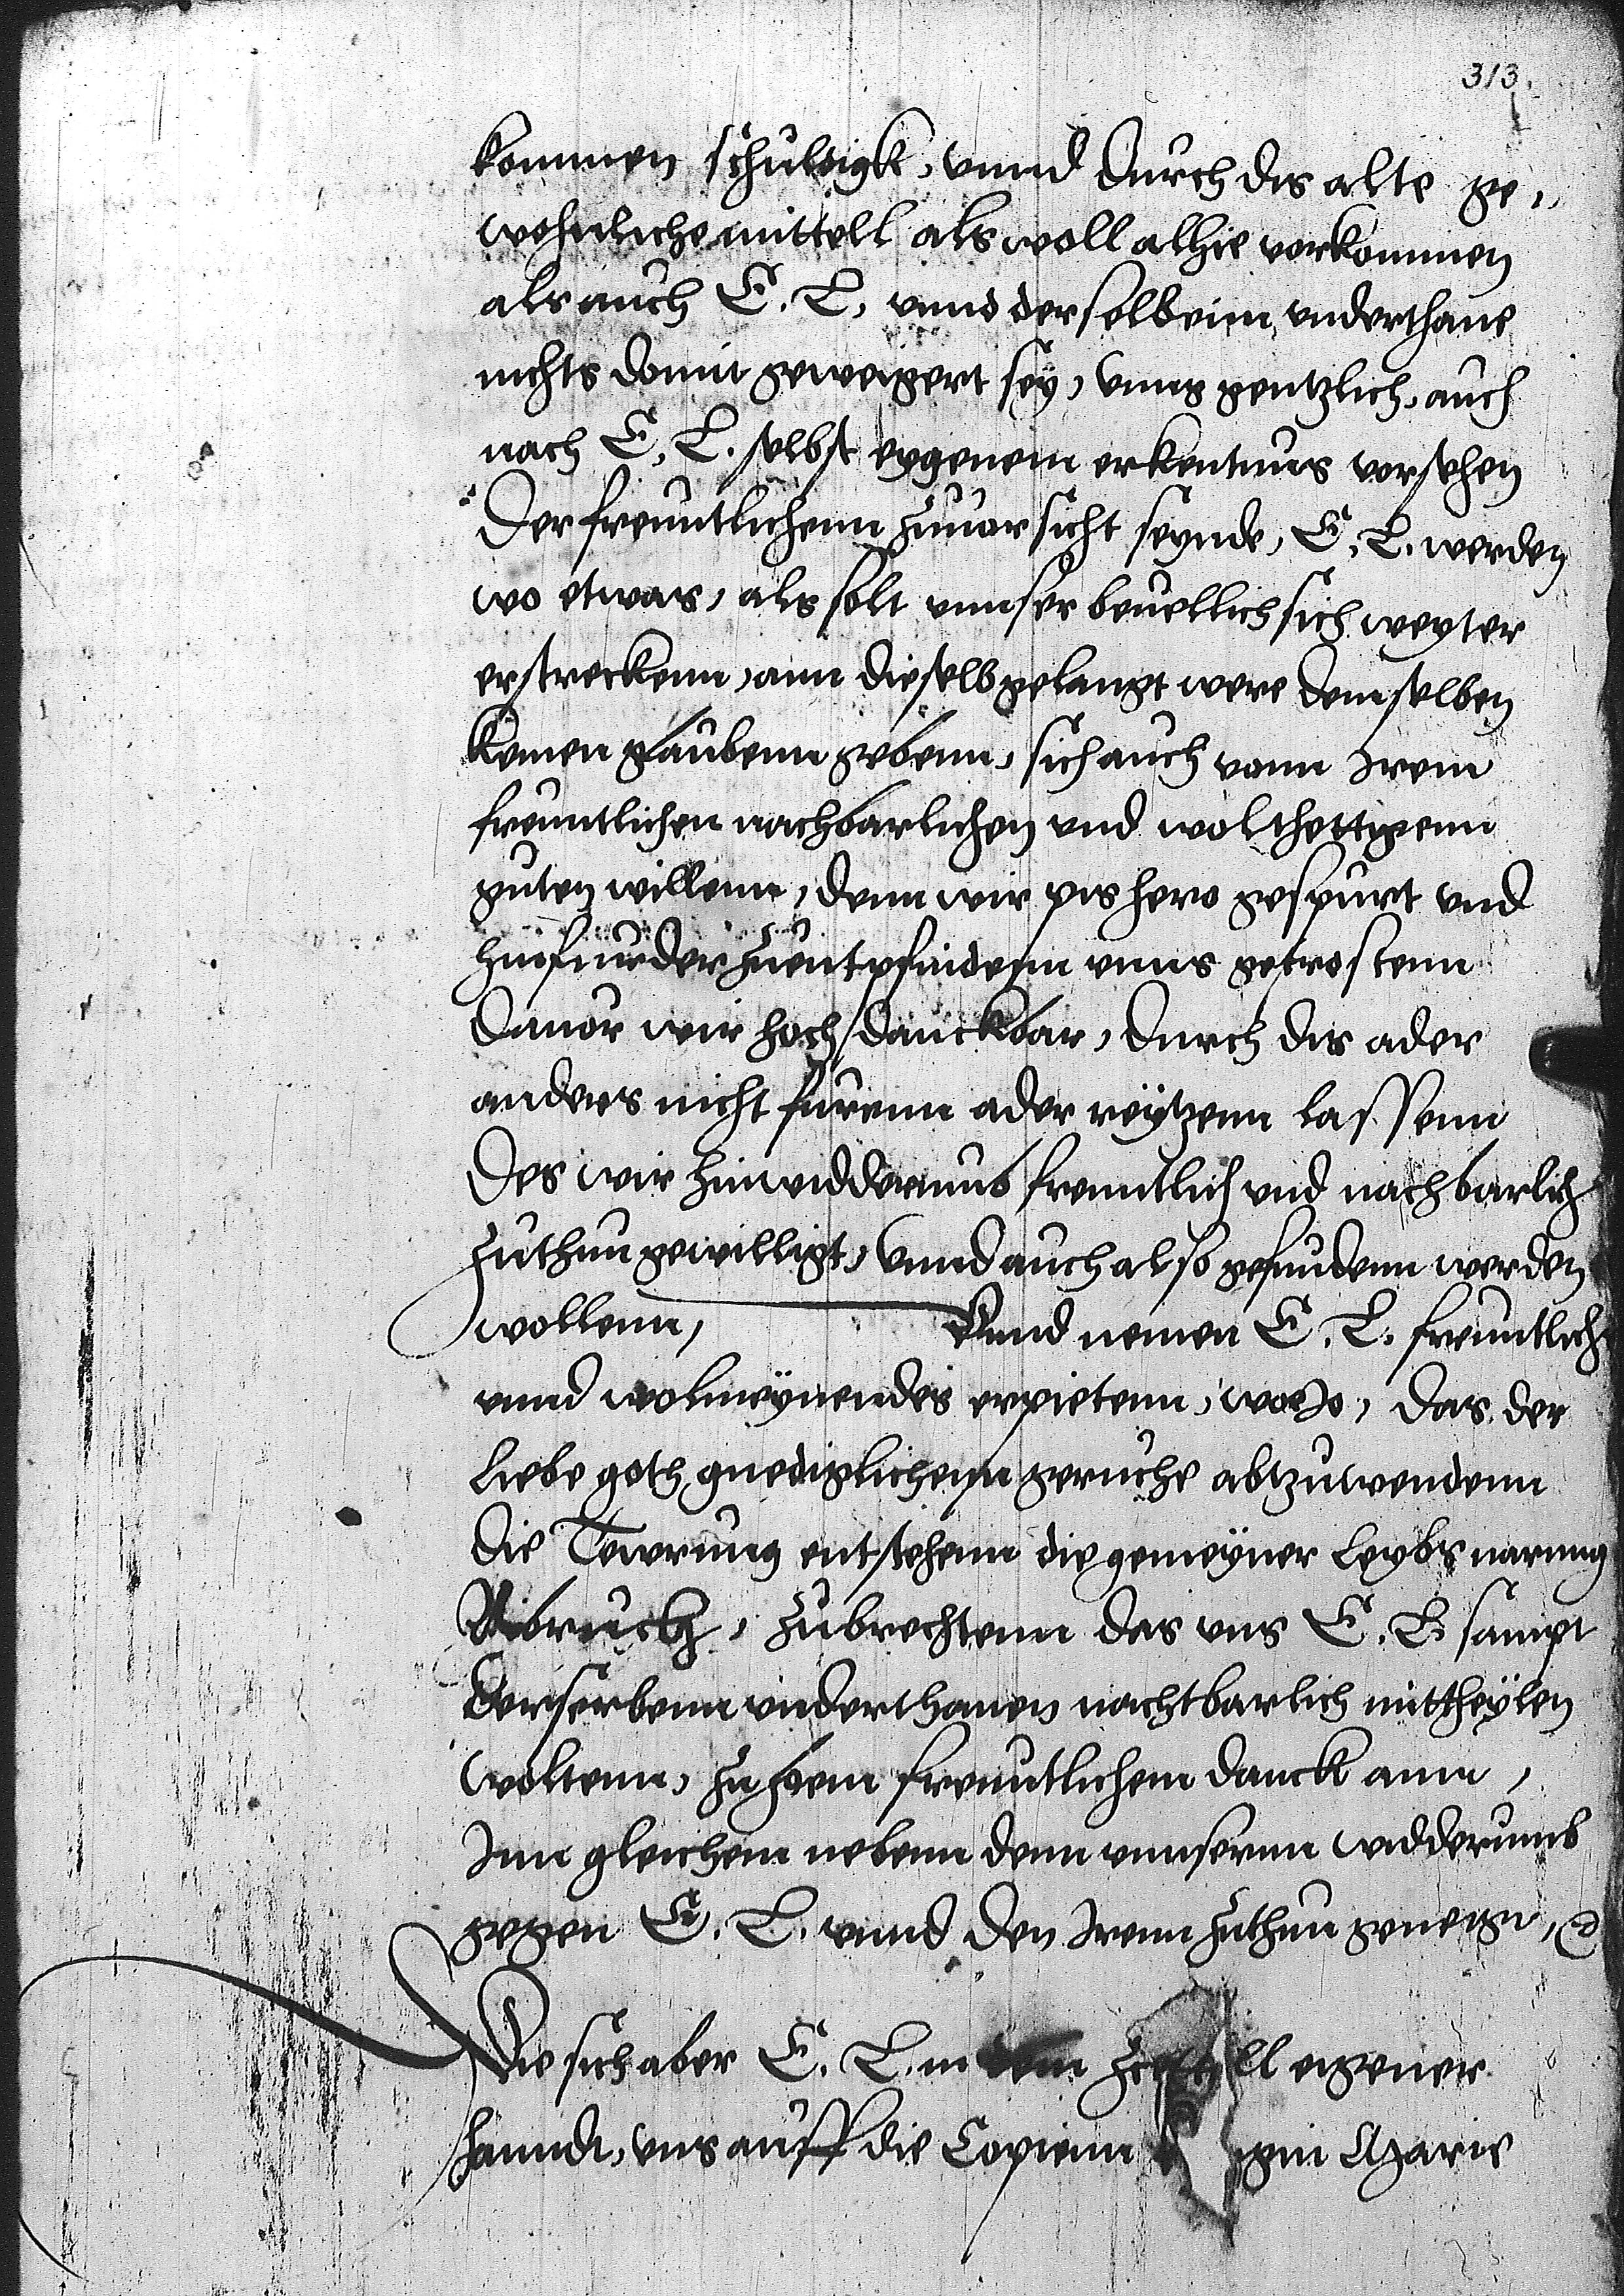 313.
kommen schuldigk, vnnd durch dis alte ge,,
wohnliche mittell als woll alhie vorkommen
als auch E. L. vnnd derselbeim vnderthane
nichts domit geweygert sey, vnns gentzlich, auch
nach E. L. selbst eygenem erkentnus vorsehen
Der freuntlichenn zuuorsicht seynde, E. L. werden
wo etwas, als solt vnnser beuellich sich weyter
erstreckenn, ann dieselb gelangt were demselben
keinen glaubenn gebenn, sich auch vonn Irem
freuntlichen nachbarlichen vnd wolthettigenn
guten willenn, denn wir pis hero gespurt vnd
hinfurder zuentpfindenn vnns getrostenn
Dauor wir hoch danckbar, durch dis ader
anders nicht furenn ader reytzenn lassenn
Des wir hinwidderumb freuntlich vnd nachbarlich
zuthun gewilligt, vnnd auch also gefundenn werden
wollenn, Vnnd nemen E. L. freuntlich
vnnd wolmeynendes erpietenn, wo Jo, das der
liebe goth gnediglichenn geruche abtzuwendenn
die Tewrung entstehenn die gemeyner leybs narung
Abruch, zubrechtenn das vns E. L. sampt
derselbenn vnderthanen nachtbarlich mittheylen
woltenn, zu hoem freuntlichem danck ann,
Inn gleichem nebenn denn vnnsernn widderumb
gegen E. L. vnnd den Irenn zuthun geneigt,
Die sich aber E. L. in eigener
hanndt, vns auff die Copienn Marie